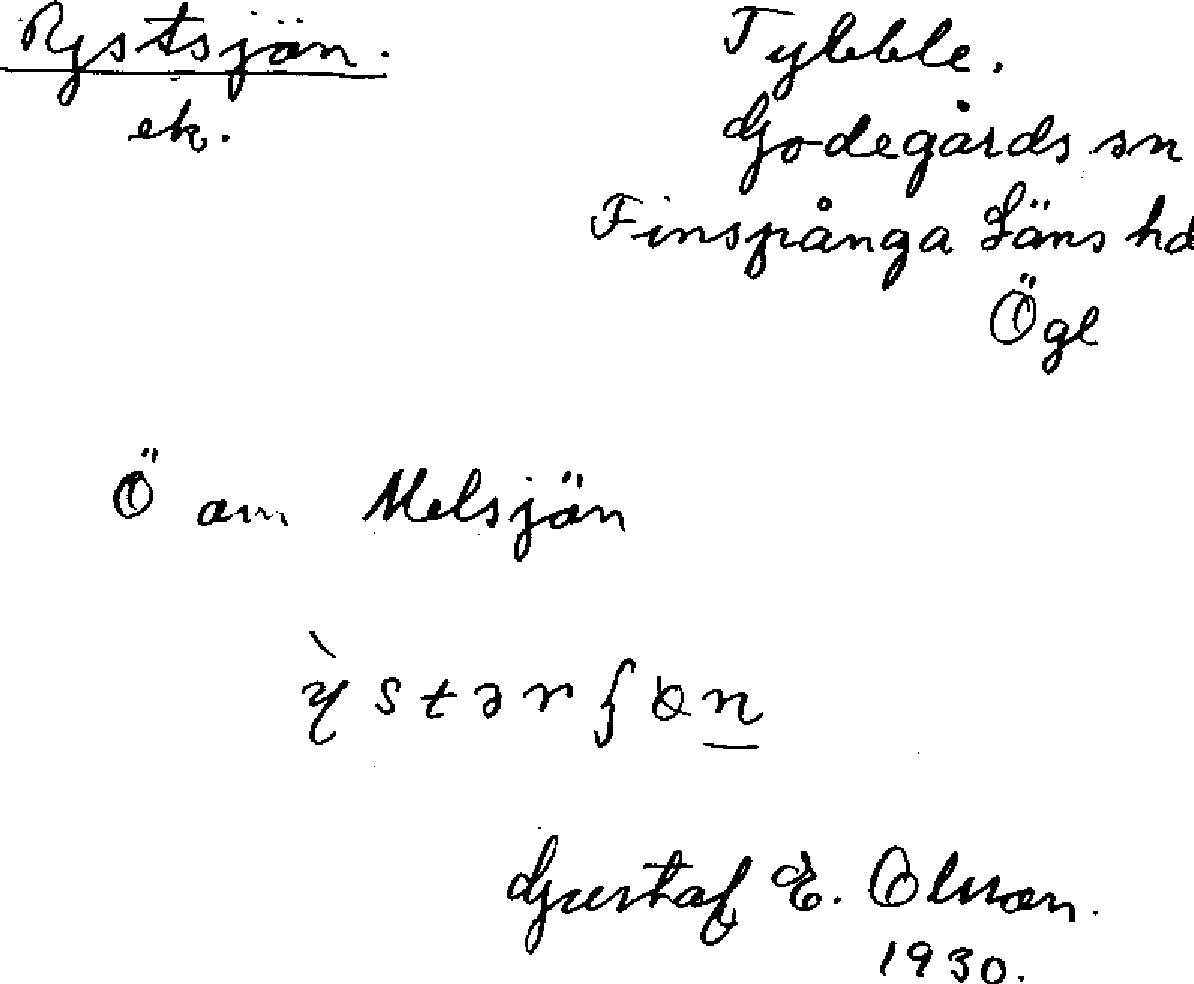 Rystsjön.
ek.
Tybble.
Godegårds sn
Finspånga Läns hd
Ögl
Ö om Melsjön
y̆̀stərʃøn
Gustaf E. Olsson.
1930.